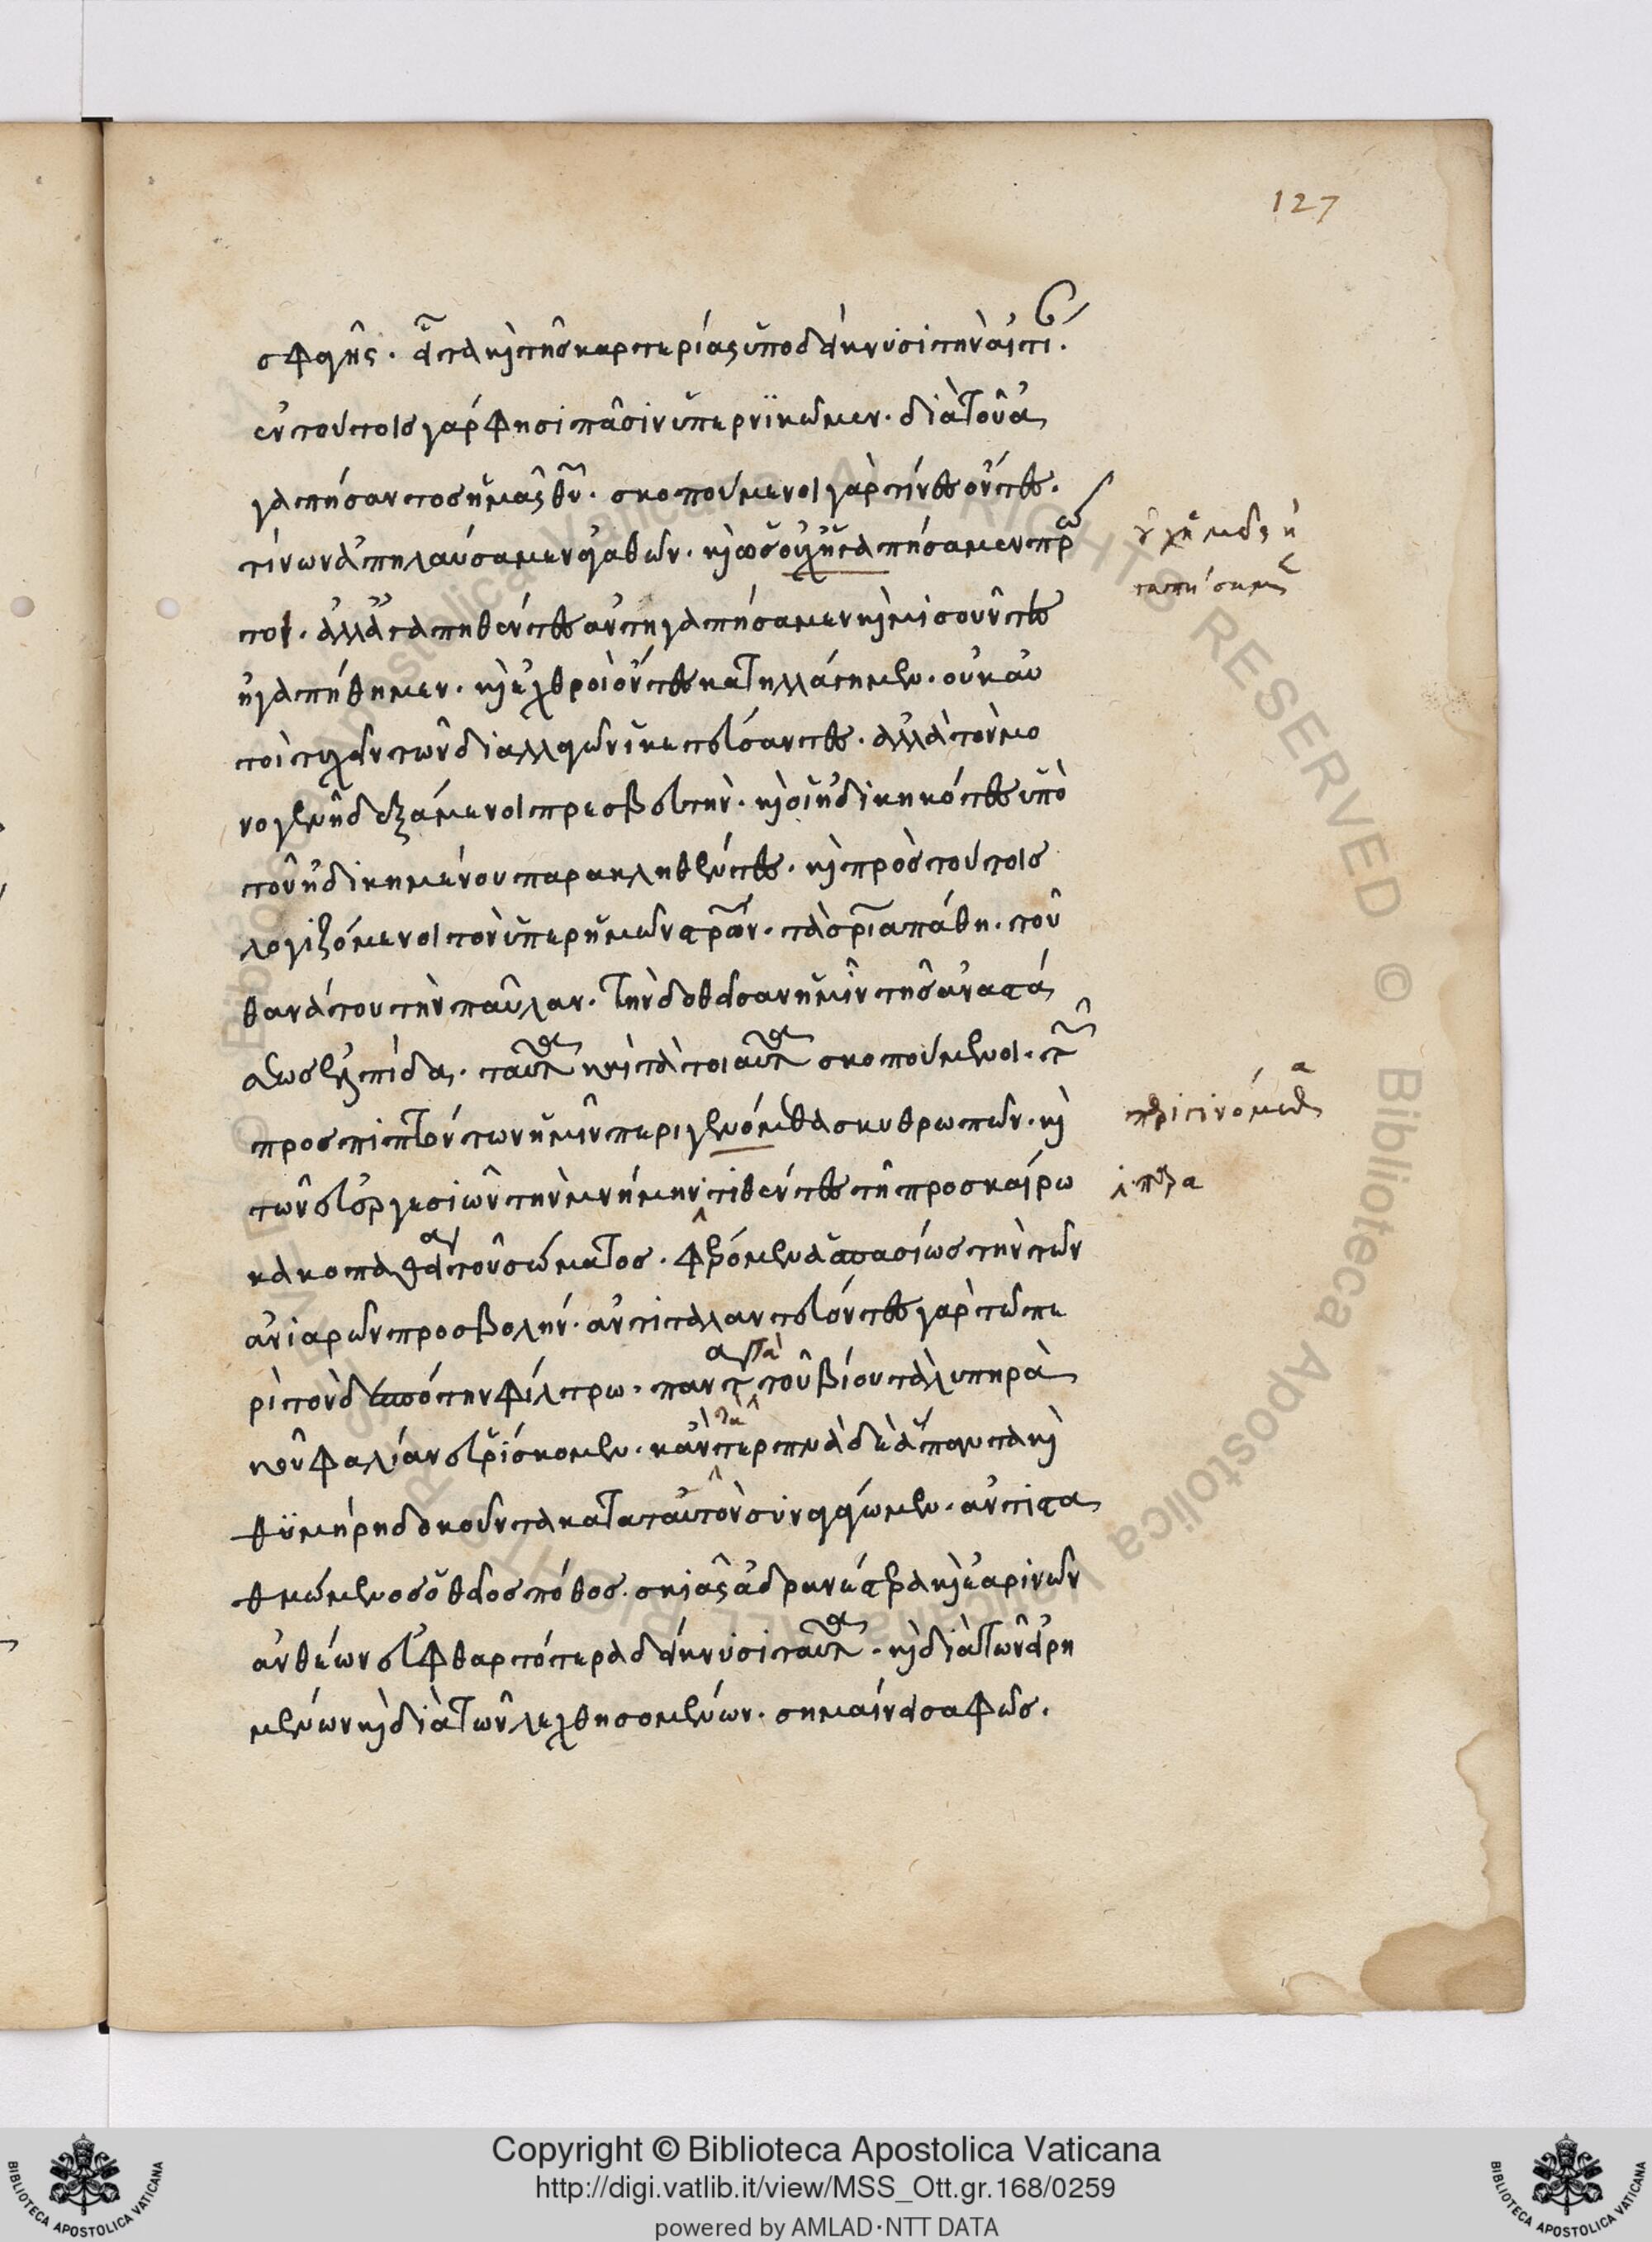 127
σφαγῆς. εἶτα καὶ τῆς καρτερίας ὑποδείκνυσι τὴν αἰτί.
ἐν τούτοις γάρ φησι πᾶσιν ὑπερνικῶμεν. διὰ τοῦ ἀ
γαπήσαντος ἡμᾶς θυ. σκοπούμενοι γὰρ τίνες ὄντες.
τίνων ἀπηλαύσαμεν ἀγαθῶν. καὶ ὡς οὐχ ἡγαπήσαμεν πρῶ
τοι. ἀλλ' ἀγαπηθέντες ἀντηγαπήσαμεν καὶ μισοῦντες
ἠγαπήθημεν. καὶ ἐχθροὶ ὄντες κατηλλάγημεν. οὐκ αὐ
τοὶ τυχεῖν τῶν διαλλαγῶν ἱκετεύσαντες. ἀλλὰ τὸν μο
νογενῆ δεξάμενοι πρεσβευτήν. καὶ οἱ ἠδικηκότες ὑπὸ
τοῦ ἠδικημένου παρακληθέντες. καὶ πρὸς τούτοις
λογιζόμενοι τὸν ὑπὲρ ἡμῶν στρον. τὰ σρια πάθη. τοῦ
θανάτου τὴν παῦλαν. τὴν δοθεῖσαν ἡμῖν τῆς ἀναστά
σεως ἐλπίδα. ταῦτα καὶ τὰ τοιαῦτα σκοπούμενοι. τῶν
προσπιπτόντων ἡμῖν περιγενόμεθα σκυθρωπῶν. καὶ
τῶν εὐεργεσιῶν τὴν μνήμην τιθέντες τῆ προσκαίρω
κακοπαθεία τοῦ σώματος. φέρομεν ἀσπασίως τὴν τῶν
ἀνιαρῶν προσβολήν. ἀντιταλαντεύοντες γὰρ τῶ πε
ρὶ τὸν δεσπότην φίλτρω. πάντα τὰ τοῦ βίου τὰ λυπηρὰ
κοῦφα λίαν εὑρίσκομεν. κἂν τὰ τερπνὰ δὲ ἅπαντα καὶ
θυμήρη δοκοῦντα κατὰ ταυτὸν συναγάγωμεν. ἀντιστα
θμώμενος ὁ θεῖος πόθος. σκιᾶς ἀδρανέστερα καὶ ἐαρινῶν
ἀνθέων εὐφθαρτότερα δείκνυσι ταῦτα. καὶ διὰ τῶν εἰρη
μένων καὶ διὰ τῶν λεχθησομένων. σημαίνει σαφῶς.
Copyright © Biblioteca Apostolica Vaticana
http://digi.vatlib.it/view/MSS_Ott.gr.168/0259
powered by AMLAD·NTT DATA
BIBLIOTECA APOSTOLICA VATICANA
BIBLIOTECA APOSTOLICA VATICANA